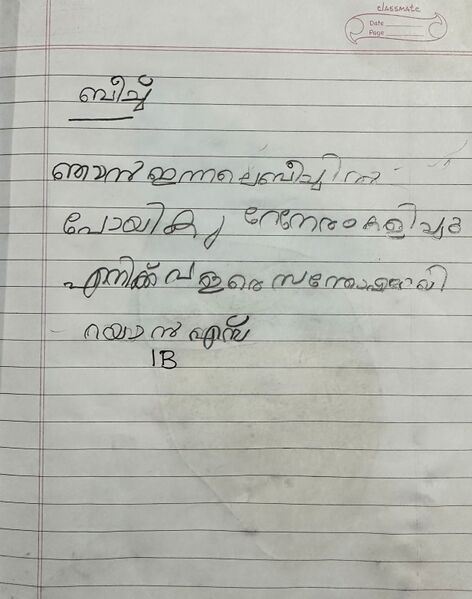 classmate
Date
Page
ബീച്ച്
ഞാൻ ഇന്നലെ ബീച്ചിൽ
പോയി കു റേനേരം കളിച്ചു
എനിക്ക് വളരെ സന്തോഷമായി
റയാൻ എസ്
1B